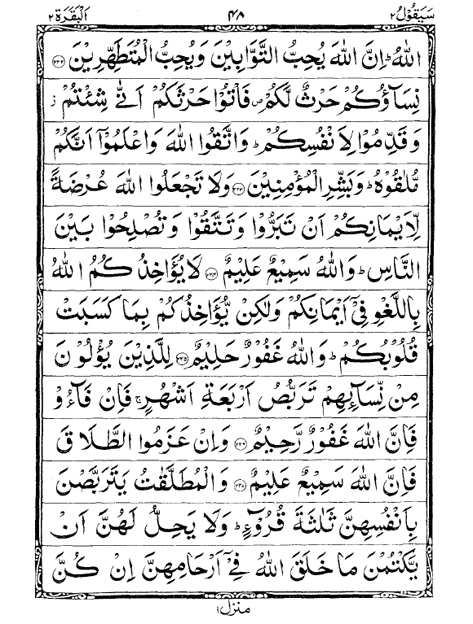 سَيَقُوۡلُ ٢ ٤٨ اَلۡبَقَرَة ٢
اللّٰهُ ؕ اِنَّ اللّٰهَ يُحِبُّ التَّوَّابِيۡنَ وَيُحِبُّ الۡمُتَطَهِّرِيۡنَ ﴿۲۲۲﴾
نِسَآؤُكُمۡ حَرۡثٌ لَّكُمۡ ۪ فَاۡتُوۡا حَرۡثَكُمۡ اَنّٰى شِئۡتُمۡ ز
وَقَدِّمُوۡا لِاَنۡفُسِكُمۡ ؕ وَاتَّقُوا اللّٰهَ وَاعۡلَمُوۡٓا اَنَّكُمۡ
مُّلٰقُوۡهُ ؕ وَبَشِّرِ الۡمُؤۡمِنِيۡنَ ﴿۲۲۳﴾ وَلَا تَجۡعَلُوا اللّٰهَ عُرۡضَةً
لِّاَيۡمَانِكُمۡ اَنۡ تَبَرُّوۡا وَتَتَّقُوۡا وَتُصۡلِحُوۡا بَيۡنَ
النَّاسِ ؕ وَاللّٰهُ سَمِيۡعٌ عَلِيۡمٌ ﴿۲۲۴﴾ لَا يُؤَاخِذُكُمُ اللّٰهُ
بِاللَّغۡوِ فِىۡٓ اَيۡمَانِكُمۡ وَلٰكِنۡ يُّؤَاخِذُكُمۡ بِمَا كَسَبَتۡ
قُلُوۡبُكُمۡ ؕ وَاللّٰهُ غَفُوۡرٌ حَلِيۡمٌ ﴿۲۲۵﴾ لِلَّذِيۡنَ يُؤۡلُوۡنَ
مِنۡ نِّسَآئِهِمۡ تَرَبُّصُ اَرۡبَعَةِ اَشۡهُرٍ ۚ فَاِنۡ فَآءُوۡ
فَاِنَّ اللّٰهَ غَفُوۡرٌ رَّحِيۡمٌ ﴿۲۲۶﴾ وَاِنۡ عَزَمُوا الطَّلَاقَ
فَاِنَّ اللّٰهَ سَمِيۡعٌ عَلِيۡمٌ ﴿۲۲۷﴾ وَالۡمُطَلَّقٰتُ يَتَرَبَّصۡنَ
بِاَنۡفُسِهِنَّ ثَلٰثَةَ قُرُوۡٓءٍ ؕ وَلَا يَحِلُّ لَهُنَّ اَنۡ
يَّكۡتُمۡنَ مَا خَلَقَ اللّٰهُ فِىۡٓ اَرۡحَامِهِنَّ اِنۡ كُنَّ
منزل ١